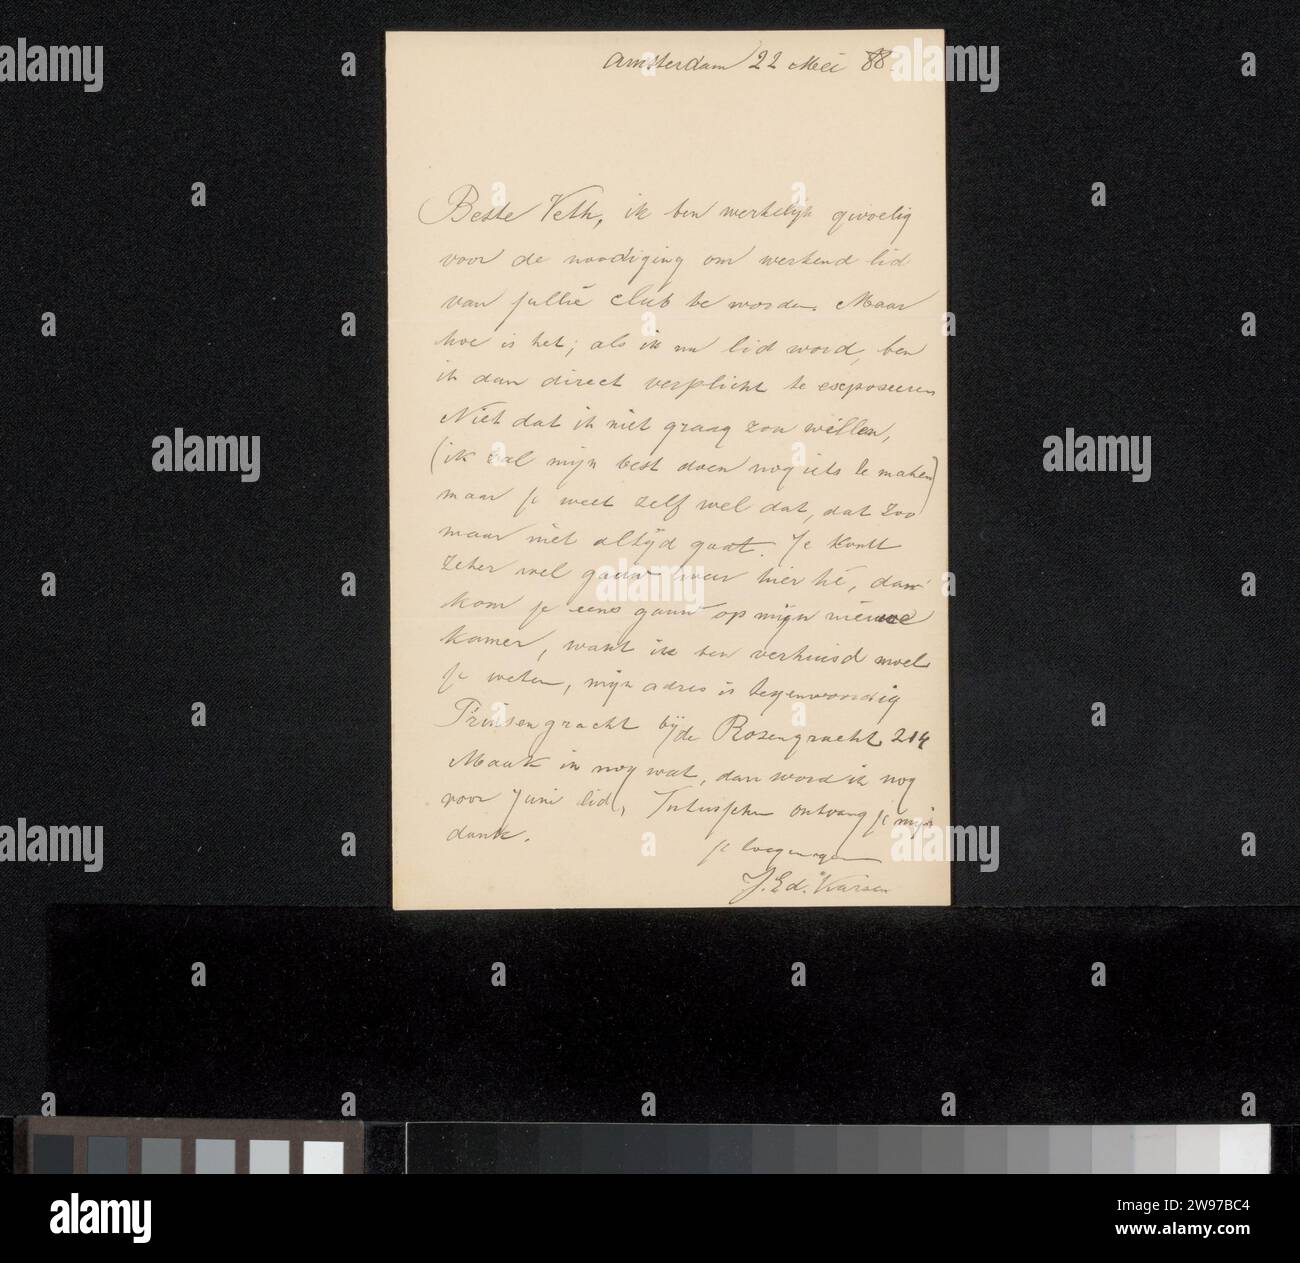 Amsterdam 22 Mei 88
Beste Veth, ik ben werkelijk gevoelig
voor de noodiging om werkend lid
van jullie club te worden. Maar
hoe is het; als ik nu lid word, ben
ik dan direct verplicht te exposeeren
Niet dat ik niet graag zou willen,
(ik zal mijn best doen nog iets te maken)
maar je weet zelf wel dat, dat zoo
maar niet altijd gaat. Je komt
zeker wel gauw weer hier hé, dan
kom je eens gauw op mijn nieuwe
kamer, want ik ben verhuisd moet
je weten, mijn adres is tegenwoordig
Prinsengracht bij de Rozengracht 214
Maak ik nog wat, dan word ik nog
voor Juni lid, Intusschen ontvang je mijn
dank.
je toegenegen
J. Ed. Karsen
alamy
Image ID: 2W97BC4
www.alamy.com